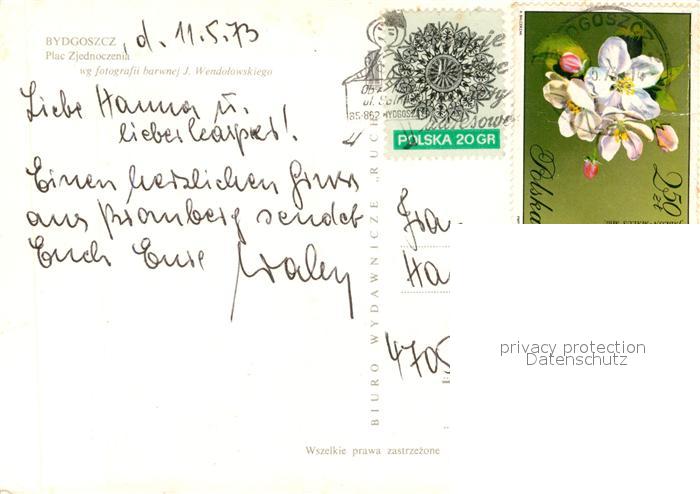 BYDGOSZCZ, d. 11.5.73
Plac Zjednoczenia
wg fotografii barwnej J. Wendołowskiego
Liebe Hanna u.
lieber Kasper!
Einen herzlichen Gruss
aus Bromberg sendet
Euch Eure
BIURO WYDAWNICZE „RUCH
Wszelkie prawa zastrzeżone
85-862 BYDGOSZCZ
POLSKA 20 GR
BYDGOSZCZ
Polska
2,50 zł
Fra
Ha
4705
privacy protection
Datenschutz